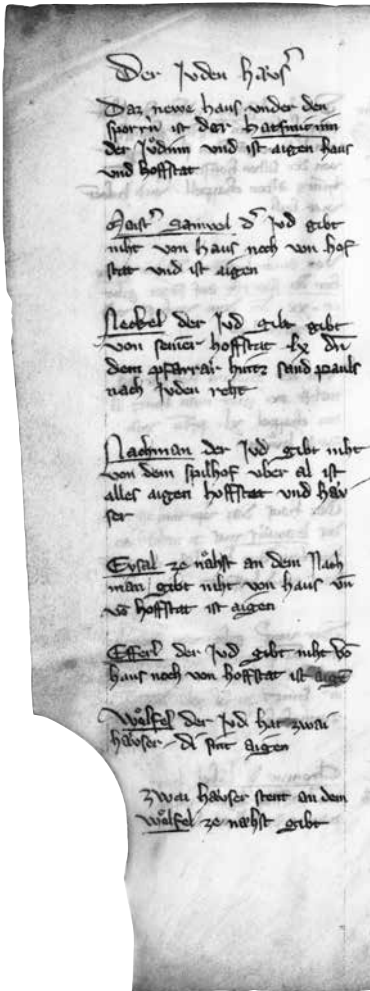 Der Juden häus
Daz newe haus under den
sporrn ist der hatschmerinn
der Judinn und ist aigen haus
und hoffstat
Maist Samuel d Jud gibt
niht von haus noch von hof
stat und ist aigen
Neckel der Jud gibt gibt
von seiner hoffstat lx dn
dem pfarrair hintz sand pauls
nach Juden reht
Nachman der Jud gibt niht
von dem spilhof uber al ist
alles aigen hoffstat und häu
ser
Eysal ze nåhst an dem Nach
man gibt niht von haus vn
vo hoffstat ist aigen
Efferl der Jud gibt niht vo
haus noch von hoffstat ist aige
Wölfel der Jud hat zwai
häuser di sint aigen
zwai häuser stent an dem
Wölfel ze nåhst gibt